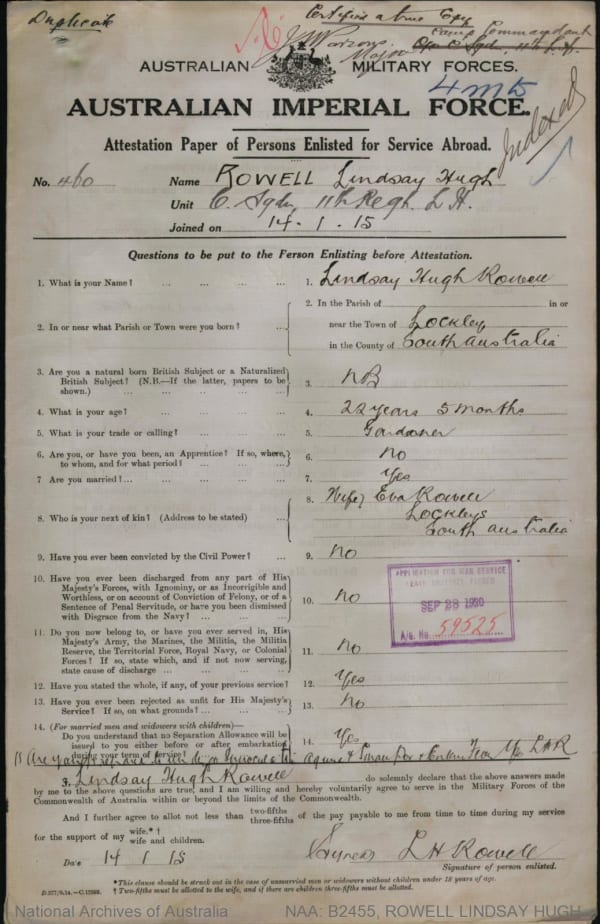 Duplicate
Certified a true Copy
J S W Parsons
Major
Camp Commandant
AUSTRALIAN MILITARY FORCES.
4 mD
AUSTRALIAN IMPERIAL FORCE.
Indexed
Attestation Paper of Persons Enlisted for Service Abroad.
No. 460 Name ROWELL Lindsay Hugh
Unit C. Sqdn, 11th Regt. L.H.
Joined on 14.1.15
Questions to be put to the Person Enlisting before Attestation.
1. What is your Name? ... 1. Lindsay Hugh Rowell
2. In or near what Parish or Town were you born? ... 2. In the Parish of in or
near the Town of Lockleys
in the County of South Australia
3. Are you a natural born British Subject or a Naturalized
British Subject? (N.B.—If the latter, papers to be
shown.) ... 3. NB
4. What is your age? ... 4. 22 years 5 months
5. What is your trade or calling? ... 5. Gardener
6. Are you, or have you been, an Apprentice? If so, where,
to whom, and for what period? ... 6. No
7 Are you married? ... 7. Yes
8. Who is your next of kin? (Address to be stated) ... 8. Wife, Eva Rowell
Lockleys
South Australia
9. Have you ever been convicted by the Civil Power? ... 9. No
10. Have you ever been discharged from any part of His
Majesty's Forces, with Ignominy, or as Incorrigible and
Worthless, or on account of Conviction of Felony, or of a
Sentence of Penal Servitude, or have you been dismissed
with Disgrace from the Navy? ... 10. No
APPLICATION FOR WAR SERVICE
SEP 28 1930
A/c. No. 59525
11. Do you now belong to, or have you ever served in, His
Majesty's Army, the Marines, the Militia, the Militia
Reserve, the Territorial Force, Royal Navy, or Colonial
Forces? If so, state which, and if not now serving,
state cause of discharge ... 11. No
12. Have you stated the whole, if any, of your previous service? 12. Yes
13. Have you ever been rejected as unfit for His Majesty's
Service? If so, on what grounds? ... 13. No
14. (For married men and widowers with children)—
Do you understand that no Separation Allowance will be
issued to you either before or after embarkation
during your term of service? 14. Yes
15 Are you prepared to undergo inoculation against Small Pox & Enteric Fever Yes LHR
I, Lindsay Hugh Rowell do solemnly declare that the above answers made
by me to the above questions are true, and I am willing and hereby voluntarily agree to serve in the Military Forces of the
Commonwealth of Australia within or beyond the limits of the Commonwealth.
And I further agree to allot not less than two-fifths three-fifths of the pay payable to me from time to time during my service
for the support of my wife.*† wife and children.
Date 14 1 15 Signed L H Rowell
Signature of person enlisted.
*This clause should be struck out in the case of unmarried men or widowers without children under 18 years of age.
† Two-fifths must be allotted to the wife, and if there are children three-fifths must be allotted.
D.377/9.14.—C.12898.
National Archives of Australia NAA: B2455, ROWELL LINDSAY HUGH